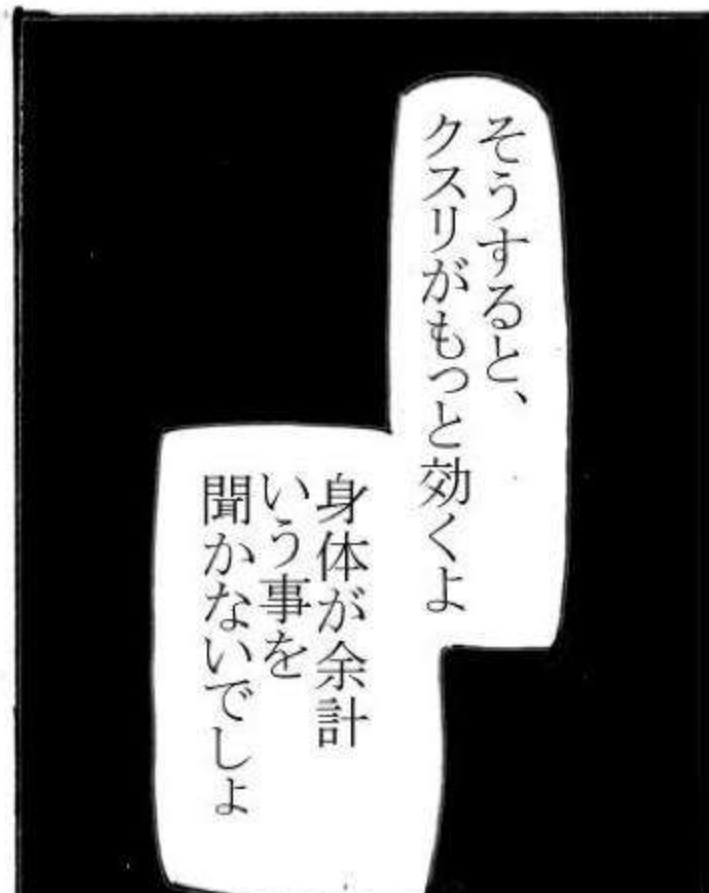 そうすると、
クスリがもっと効くよ
身体が余計
いう事を
聞かないでしょ